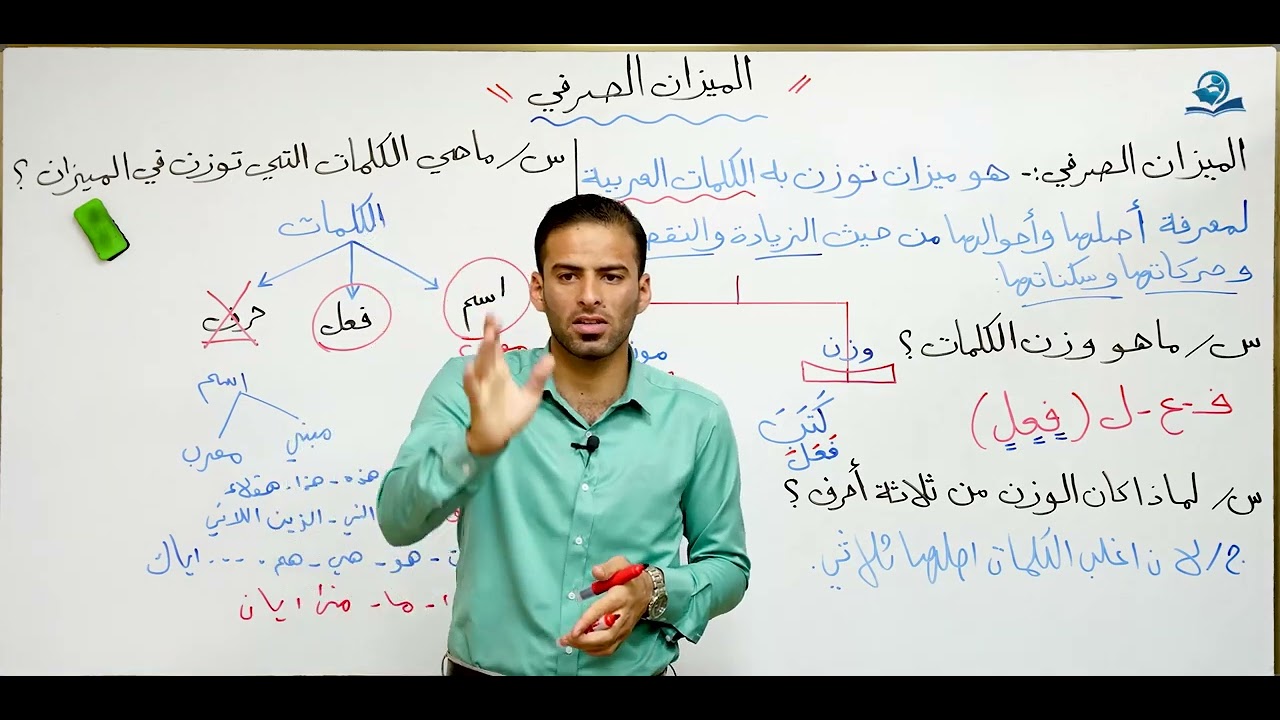 " الميزان الصرفي "
الميزان الصرفي :- هو ميزان توزن به الكلمات العربية
لمعرفة أصلها وأحوالها من حيث الزيادة والنقص
وحركاتها وسكناتها.
س/ ما هو وزن الكلمات ؟
ف - ع - ل (فعل)
س/ لماذا كان الوزن من ثلاثة أحرف ؟
ج/ لان اغلب الكلمات اصلها ثلاثي.
وزن
كَتَبَ
فَعَلَ
س/ ماهي الكلمات التي توزن في الميزان ؟
الكلمات
اسم
فعل
حرف
اسم
مبني
معرب
هذه - هذا - هؤلاء
التي - الذين اللاتي
هو - هي - هم .... اياك
ما - متى ايان